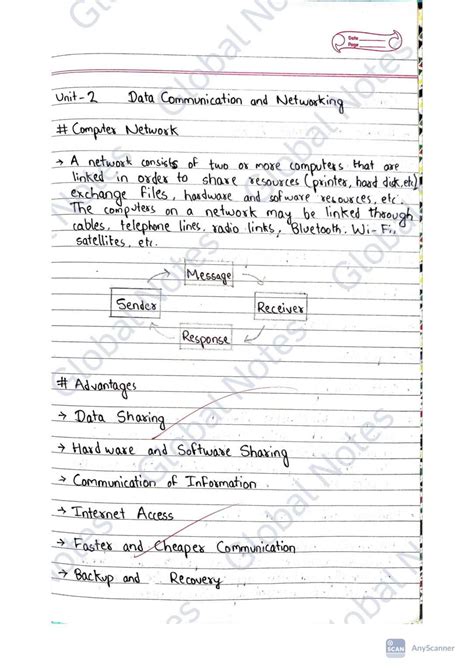 Date
Page
Unit-2 Data Communication and Networking
# Computer Network
→ A network consists of two or more computers that are
linked in order to share resources (printer, hard disk, etc)
exchange files, hardware and sofware resources, etc.
The computers on a network may be linked through
cables, telephone lines, radio links, Bluetooth, Wi-Fi,
satellites, etc.
Message
Sender Receiver
Response
# Advantages
→ Data Sharing
→ Hardware and Software Sharing
→ Communication of Information
→ Internet Access
→ Faster and Cheaper Communication
→ Backup and Recovery
Global Notes
SCAN AnyScanner